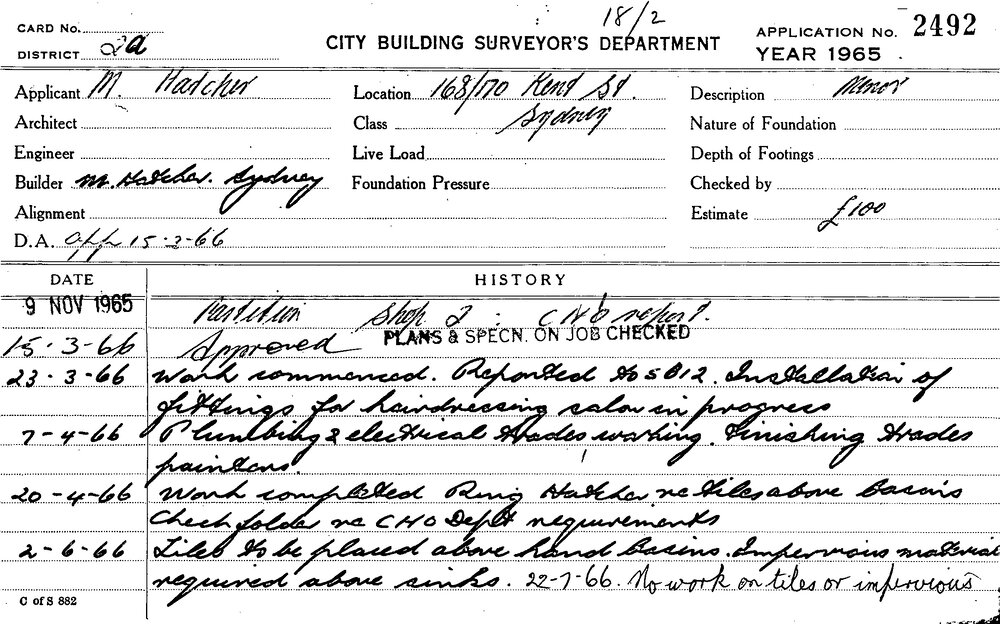 18/2
CARD No.
DISTRICT 2a
CITY BUILDING SURVEYOR'S DEPARTMENT
APPLICATION No. 2492
YEAR 1965
Applicant M. Hatcher
Location 168/170 Kent St.
Description Minor
Architect
Class Sydney
Nature of Foundation
Engineer
Live Load
Depth of Footings
Builder M. Hatcher. Sydney
Foundation Pressure
Checked by
Alignment
Estimate £100
D.A. app 15-3-66
DATE HISTORY
9 NOV 1965 Partition Shop 2 : CHO report.
15-3-66 Approved PLANS & SPECN. ON JOB CHECKED
23-3-66 Work commenced. Reported to SB12. Installation of
fittings for hairdressing salon in progress
7-4-66 Plumbing & electrical trades working. Finishing trades
painters.
20-4-66 Work completed Ring Hatcher re tiles above basins
Check folder re CHO Dept requirements
2-6-66 Tiles to be placed above hand basins. Impervious material
required above sinks. 22-7-66. No work on tiles or impervious
C of S 882